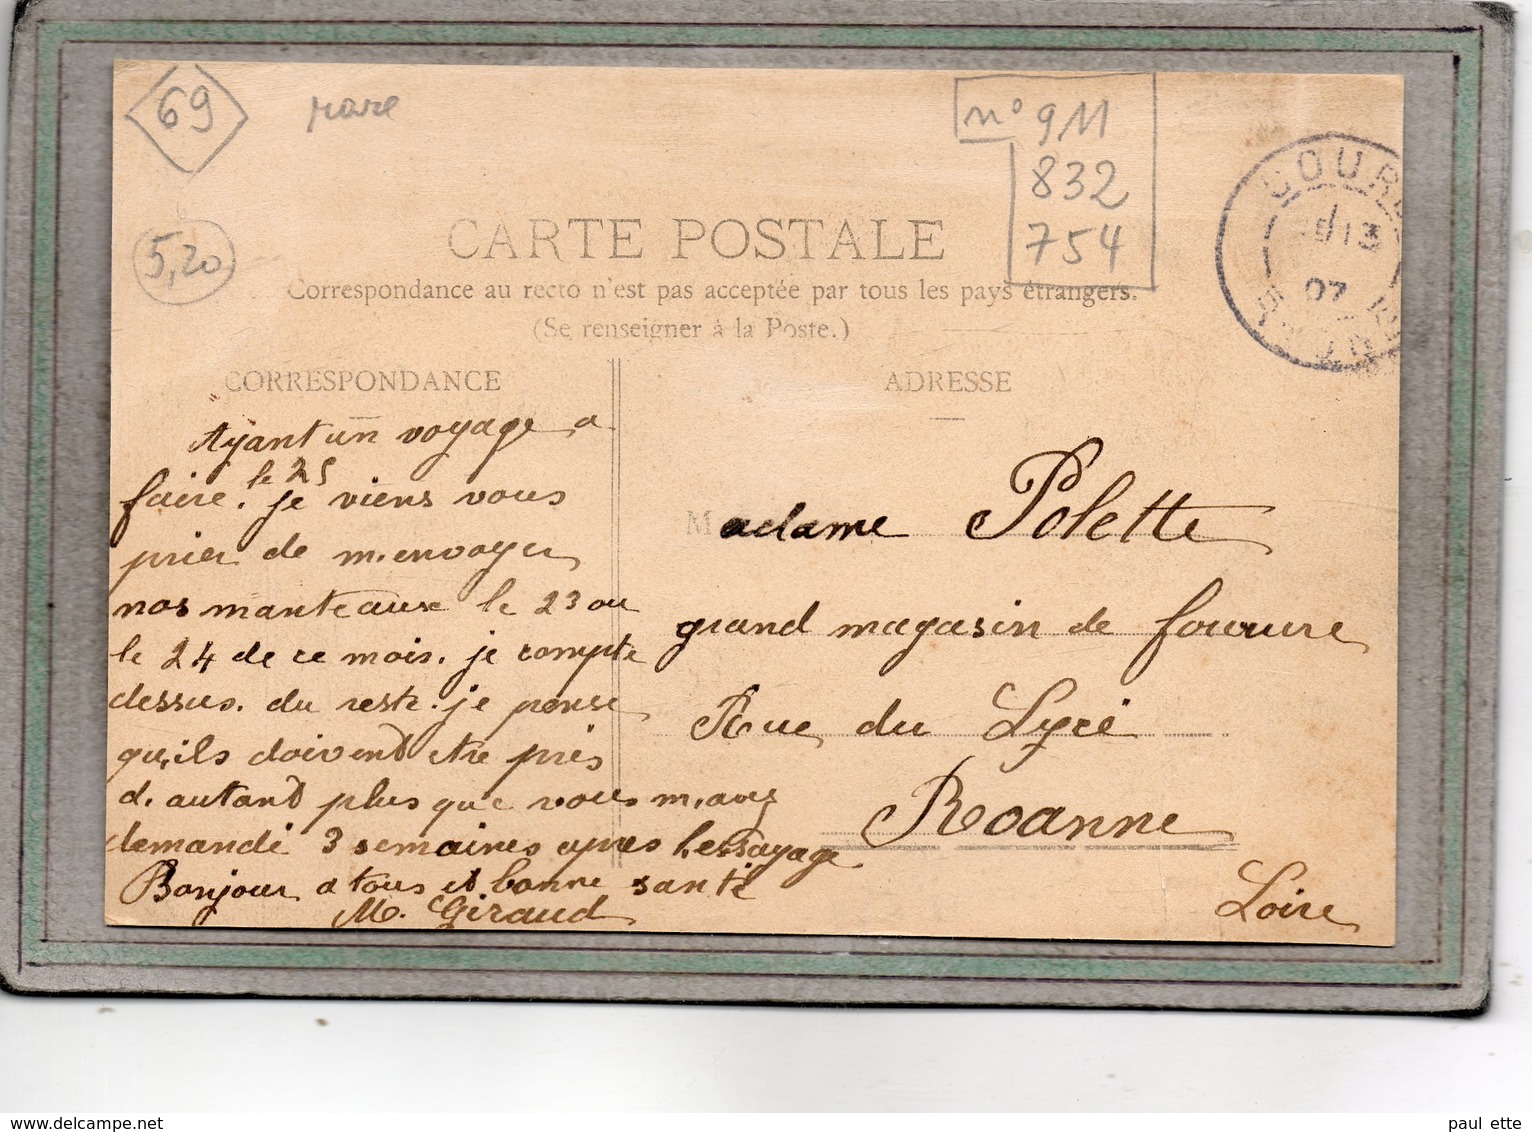 69
rare
n° 911
832
754
5,20
COURS
13
07
CARTE POSTALE
Correspondance au recto n'est pas acceptée par tous les pays étrangers.
(Se renseigner à la Poste.)
CORRESPONDANCE
ADRESSE
Ayant un voyage a
faire. le 25 je viens vous
prier de m.envoyer
nos manteaux le 23 ou
le 24 de ce mois. je compte
dessus. du reste. je pense
qu,ils doivent etre près
d.autant plus que vous m,avez
demandé 3 semaines apres l,essayage
Bonjour a tous et bonne santé
M. Giraud
Madame Polette
grand magasin de fourrure
Rue du Lycé
Roanne
Loire
paul ette
www.delcampe.net